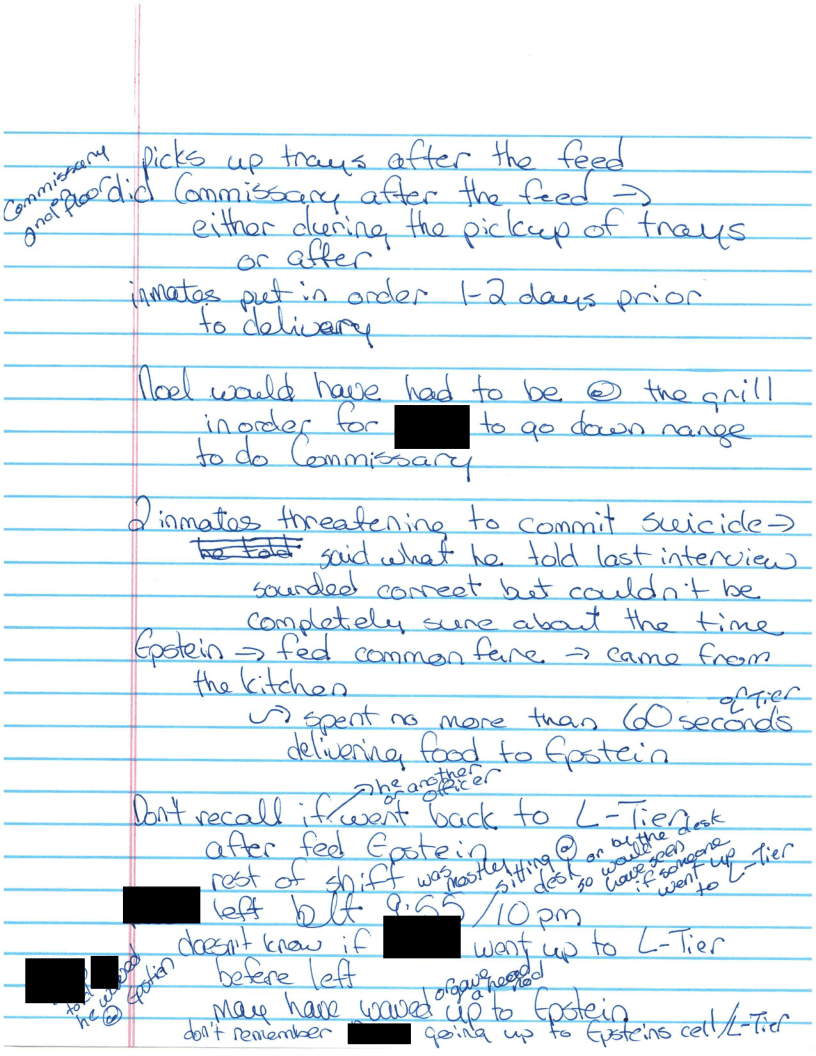 picks up trays after the feed
Commissary
and floor
did Commissary after the feed →
either during the pickup of trays
or after
inmates put in order 1-2 days prior
to delivery
Noel would have had to be @ the grill
in order for to go down range
to do Commissary
2 inmates threatening to commit suicide →
he told said what he told last interview
sounded correct but couldn't be
completely sure about the time
Epstein → fed common fare → came from
the kitchen
of Tier
↪ spent no more than 60 seconds
delivering food to Epstein
→ he another
or officer
Don't recall if went back to L-Tier
after feed Epstein
rest of shift was mostly sitting @ desk or by the desk
so would have seen if someone went up to L-Tier
left bt 9:55/10pm
doesn't know if went up to L-Tier
before left
he waved
@ Epstein
or gave head
a nod
May have waved up to Epstein
don't remember going up to Epsteins cell/L-Tier